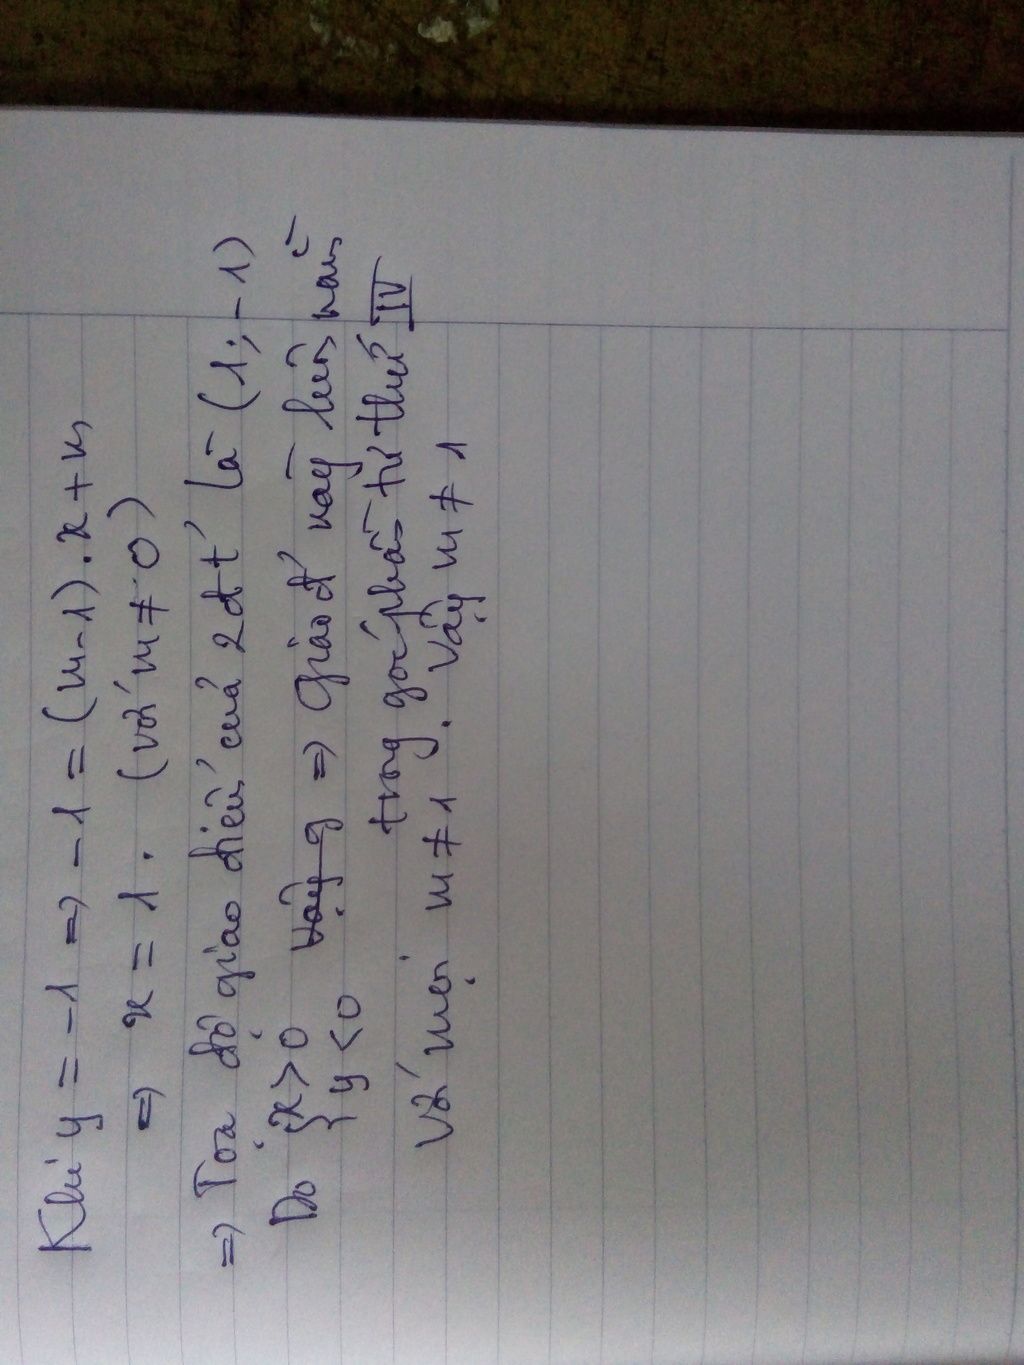 Khi y = -1 => -1 = (m-1).x + m
=> x = 1. (với m ≠ 0)
=> Tọa độ giao điểm của 2 đt là (1; -1)
Do { x > 0 Vậy g => Giao đ' này luôn nằm
y < 0 trong góc phần tư thứ IV
Với mọi m ≠ 1. Vậy m ≠ 1